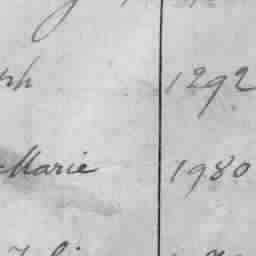 ph 1292
Marie 1980